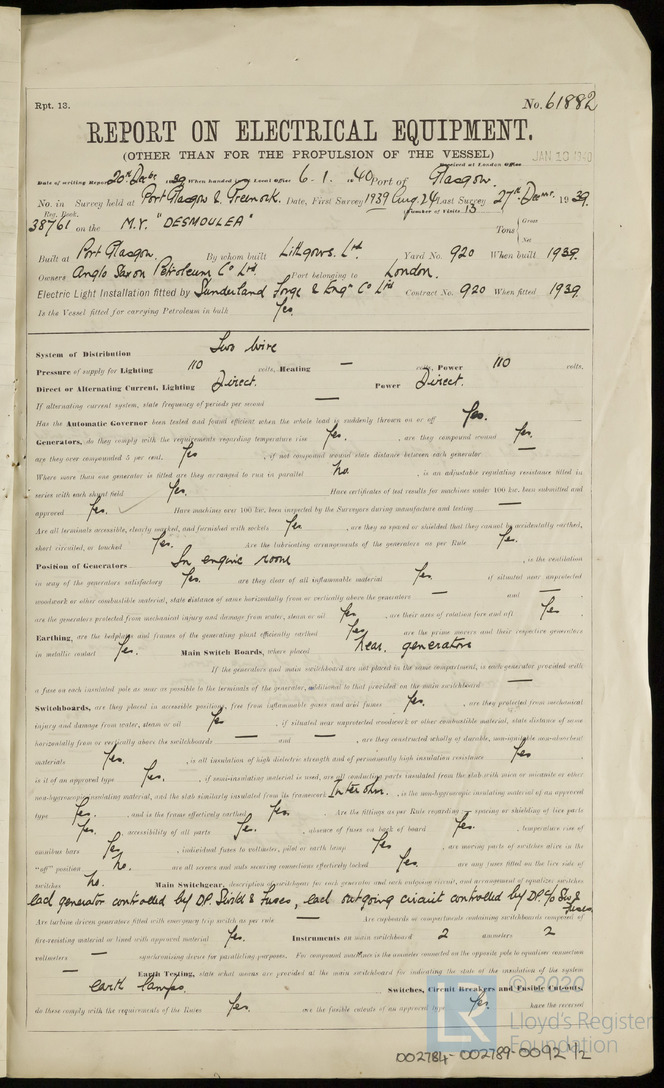 Rpt. 13. No. 61882
REPORT ON ELECTRICAL EQUIPMENT.
(OTHER THAN FOR THE PROPULSION OF THE VESSEL)
Received at London Office JAN 10 1940
Date of writing Report 20th Decbr 1939 When handed in at Local Office 6-1-1940 Port of Glasgow.
No. in Survey held at Port Glasgow & Greenock. Date, First Survey 1939 Aug. 24 Last Survey 27th Decmr 1939.
Reg. Book. (Number of Visits 13
38761 on the M.V. "DESMOULEA" Tons Gross Net
Built at Port Glasgow. By whom built Lithgows. Ltd. Yard No. 920 When built 1939.
Owners Anglo Saxon Petroleum Co Ltd. Port belonging to London.
Electric Light Installation fitted by Sunderland Forge & Engg Co Ltd Contract No. 920 When fitted 1939.
Is the Vessel fitted for carrying Petroleum in bulk Yes.
System of Distribution Two Wire
Pressure of supply for Lighting 110 volts, Heating — volts, Power 110 volts.
Direct or Alternating Current, Lighting Direct. Power Direct.
If alternating current system, state frequency of periods per second —
Has the Automatic Governor been tested and found efficient when the whole load is suddenly thrown on or off Yes.
Generators, do they comply with the requirements regarding temperature rise Yes. , are they compound wound Yes.
are they over compounded 5 per cent. Yes , if not compound wound state distance between each generator —
Where more than one generator is fitted are they arranged to run in parallel No. , is an adjustable regulating resistance fitted in
series with each shunt field Yes. Have certificates of test results for machines under 100 kw. been submitted and
approved Yes. Have machines over 100 kw. been inspected by the Surveyors during manufacture and testing —
Are all terminals accessible, clearly marked, and furnished with sockets Yes , are they so spaced or shielded that they cannot be accidentally earthed,
short circuited, or touched Yes. Are the lubricating arrangements of the generators as per Rule Yes.
Position of Generators In engine room , is the ventilation
in way of the generators satisfactory Yes. are they clear of all inflammable material Yes. if situated near unprotected
woodwork or other combustible material, state distance of same horizontally from or vertically above the generators — and —
are the generators protected from mechanical injury and damage from water, steam or oil Yes , are their axes of rotation fore and aft Yes.
Earthing, are the bedplates and frames of the generating plant efficiently earthed Yes. are the prime movers and their respective generators
in metallic contact Yes. Main Switch Boards, where placed near generators
If the generators and main switchboard are not placed in the same compartment, is each generator provided with
a fuse on each insulated pole as near as possible to the terminals of the generator, additional to that provided on the main switchboard —
Switchboards, are they placed in accessible positions, free from inflammable gases and acid fumes Yes. , are they protected from mechanical
injury and damage from water, steam or oil Yes , if situated near unprotected woodwork or other combustible material, state distance of same
horizontally from or vertically above the switchboards — and — , are they constructed wholly of durable, non-ignitable non-absorbent
materials Yes. , is all insulation of high dielectric strength and of permanently high insulation resistance Yes
is it of an approved type Yes. , if semi-insulating material is used, are all conducting parts insulated from the slab with mica or micanite or other
non-hygroscopic insulating material, and the slab similarly insulated from its framework , is the non-hygroscopic insulating material of an approved
type Yes. , and is the frame effectively earthed Yes. Are the fittings as per Rule regarding :- spacing or shielding of live parts
Yes. , accessibility of all parts Yes. , absence of fuses on back of board Yes. , temperature rise of
omnibus bars Yes. , individual fuses to voltmeter, pilot or earth lamp Yes , are moving parts of switches alive in the
"off" position No. are all screws and nuts securing connections effectively locked Yes. are any fuses fitted on the live side of
switches No. Main Switchgear, description of switchgear for each generator and each outgoing circuit, and arrangement of equalizer switches
Each generator controlled by DP. Switch & Fuses, each outgoing circuit controlled by D.P. C/O Sw. & Fuses.
Are turbine driven generators fitted with emergency trip switch as per rule — Are cupboards or compartments containing switchboards composed of
fire-resisting material or lined with approved material Yes. Instruments on main switchboard 2 ammeters 2
voltmeters — synchronising device for paralleling purposes. For compound machines is the ammeter connected on the opposite pole to equaliser connection
— Earth Testing, state what means are provided at the main switchboard for indicating the state of the insulation of the system
earth lamps. Switches, Circuit Breakers and Fusible Cut-outs,
do these comply with the requirements of the Rules Yes. are the fusible cutouts of an approved type Yes. have the reversed
© 2020
Lloyd's Register
Foundation
002784-002789-0092 1/2